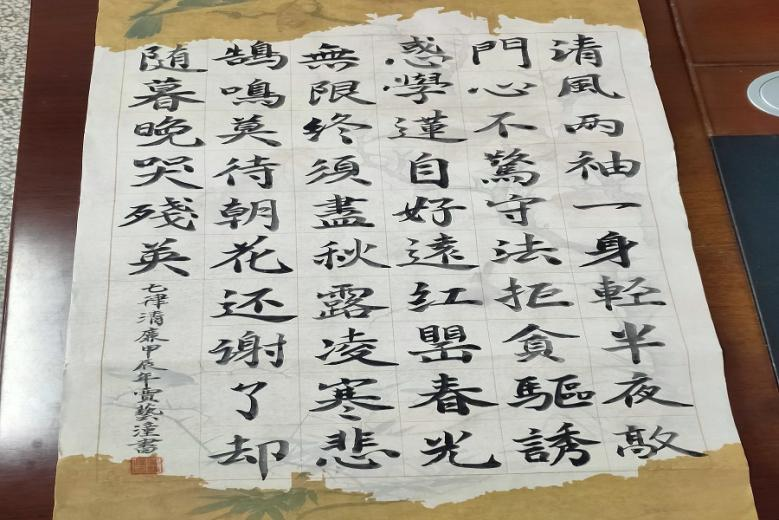 清風兩袖一身輕半夜敲
門心不驚守法拒貪驅誘
惑學蓮自好遠紅罌春光
無限終須盡秋露凌寒悲
鵠鳴莫待朝花还謝了却
随暮晚哭殘英
七律清廉甲辰年實藝滢書